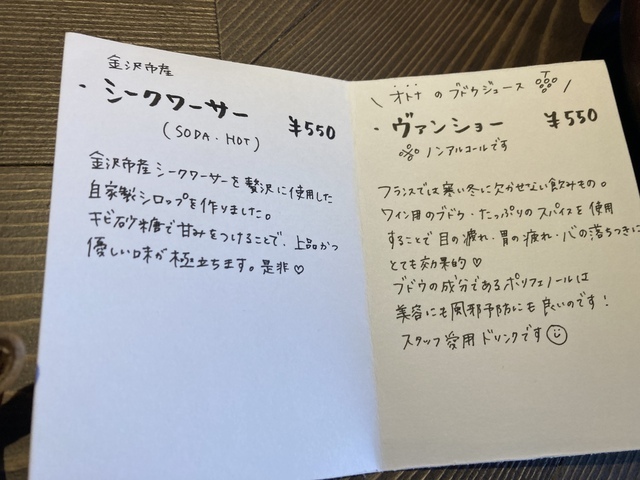 金沢市産
・シークワーサー
(SODA・HOT)
¥550
金沢市産シークワーサーを贅沢に使用した
自家製シロップを作りました。
キビ砂糖で甘みをつけることで、上品かつ
優しい味が極立ちます。是非♡
\ オトナのブドウジュース /
・ヴァンショー
¥550
ノンアルコールです
フランスでは寒い冬に欠かせない飲みもの。
ワイン用のブドウ・たっぷりのスパイスを使用
することで目の疲れ・胃の疲れ・心の落ちつきに
とても効果的♡
ブドウの成分であるポリフェノールは
美容にも風邪予防にも良いのです!
スタッフ愛用ドリンクです☺